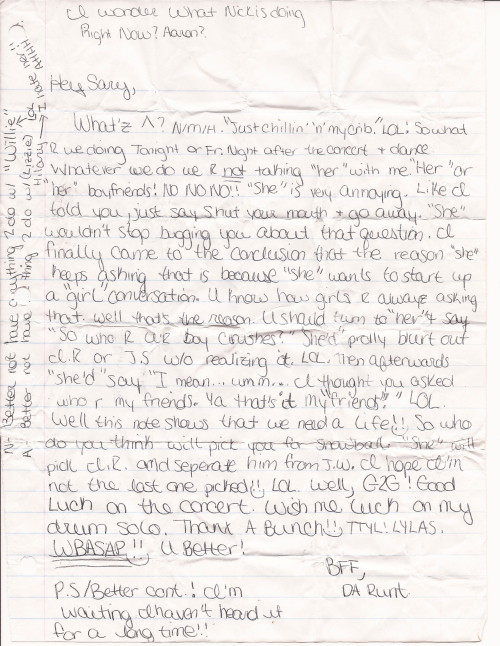 I wonder What Nick is doing
Right Now? Aaron?
Hey Sary,
What'z ^? N/m/H. "Just chillin' 'n' my crib." LOL! So what
R we doing Tonight or Fri. Night after the concert + dance
Whatever we do we R not talking "her" with me. "Her" or
"her" boyfriends! NO NO NO!! "She" is very annoying. Like I
told you, just say shut your mouth + go away. "She"
wouldn't stop bugging you about that question. I
finally came to the conclusion that the reason "she"
keeps asking that is because "she" wants to start up
a "girl" conversation. U know how girls R always asking
that well that's the reason. U should turn to "her" + say
"So who R UR boy crushes?" She'd prolly blurt out
J.R or J.S w/o realizing it. LOL. Then afterwards
"she'd" say "I mean... um.m... I thought you asked
who r my friends. Ya that's it my friends!" LOL.
Well this note shows that we need a life!! So who
do you think will pick you for snowball. "She" will
pick J.R. and seperate him from J.W. I hope I'm
not the last one picked!! LOL. Well, G2G! Good
Luck on the concert. Wish me luck on my
drum solo. Thank A Bunch!! TTYL! LYLAS.
WBASAP!! U Better!
BFF,
DA Runt
P.S/Better cont.! I'm
waiting I haven't heard it
for a long time!!
N: Better not have anything 2 do w/ "Willie"
A: Better not have 2 do w/ (Lizzie) LOL
I hate her!! AHHH!